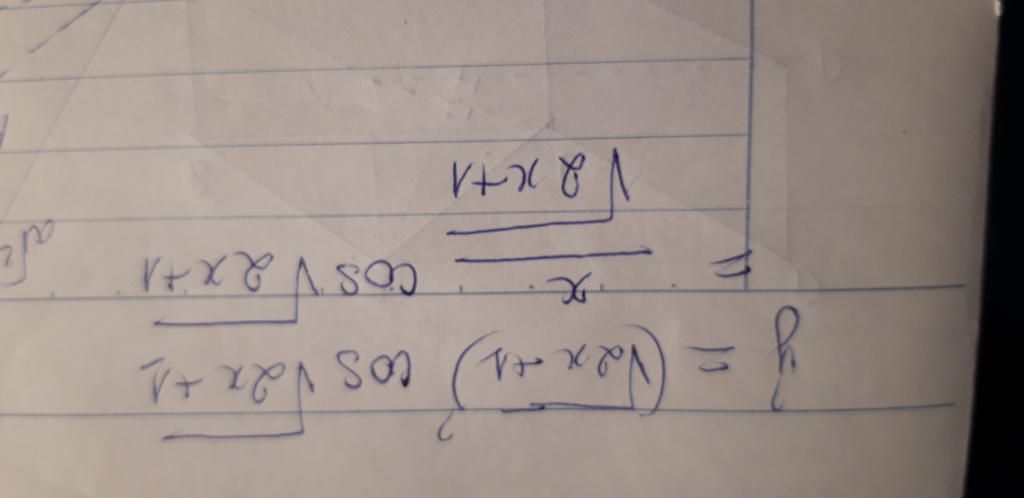 y = (√2x+1)' cos √2x+1
= x/√2x+1 cos √2x+1